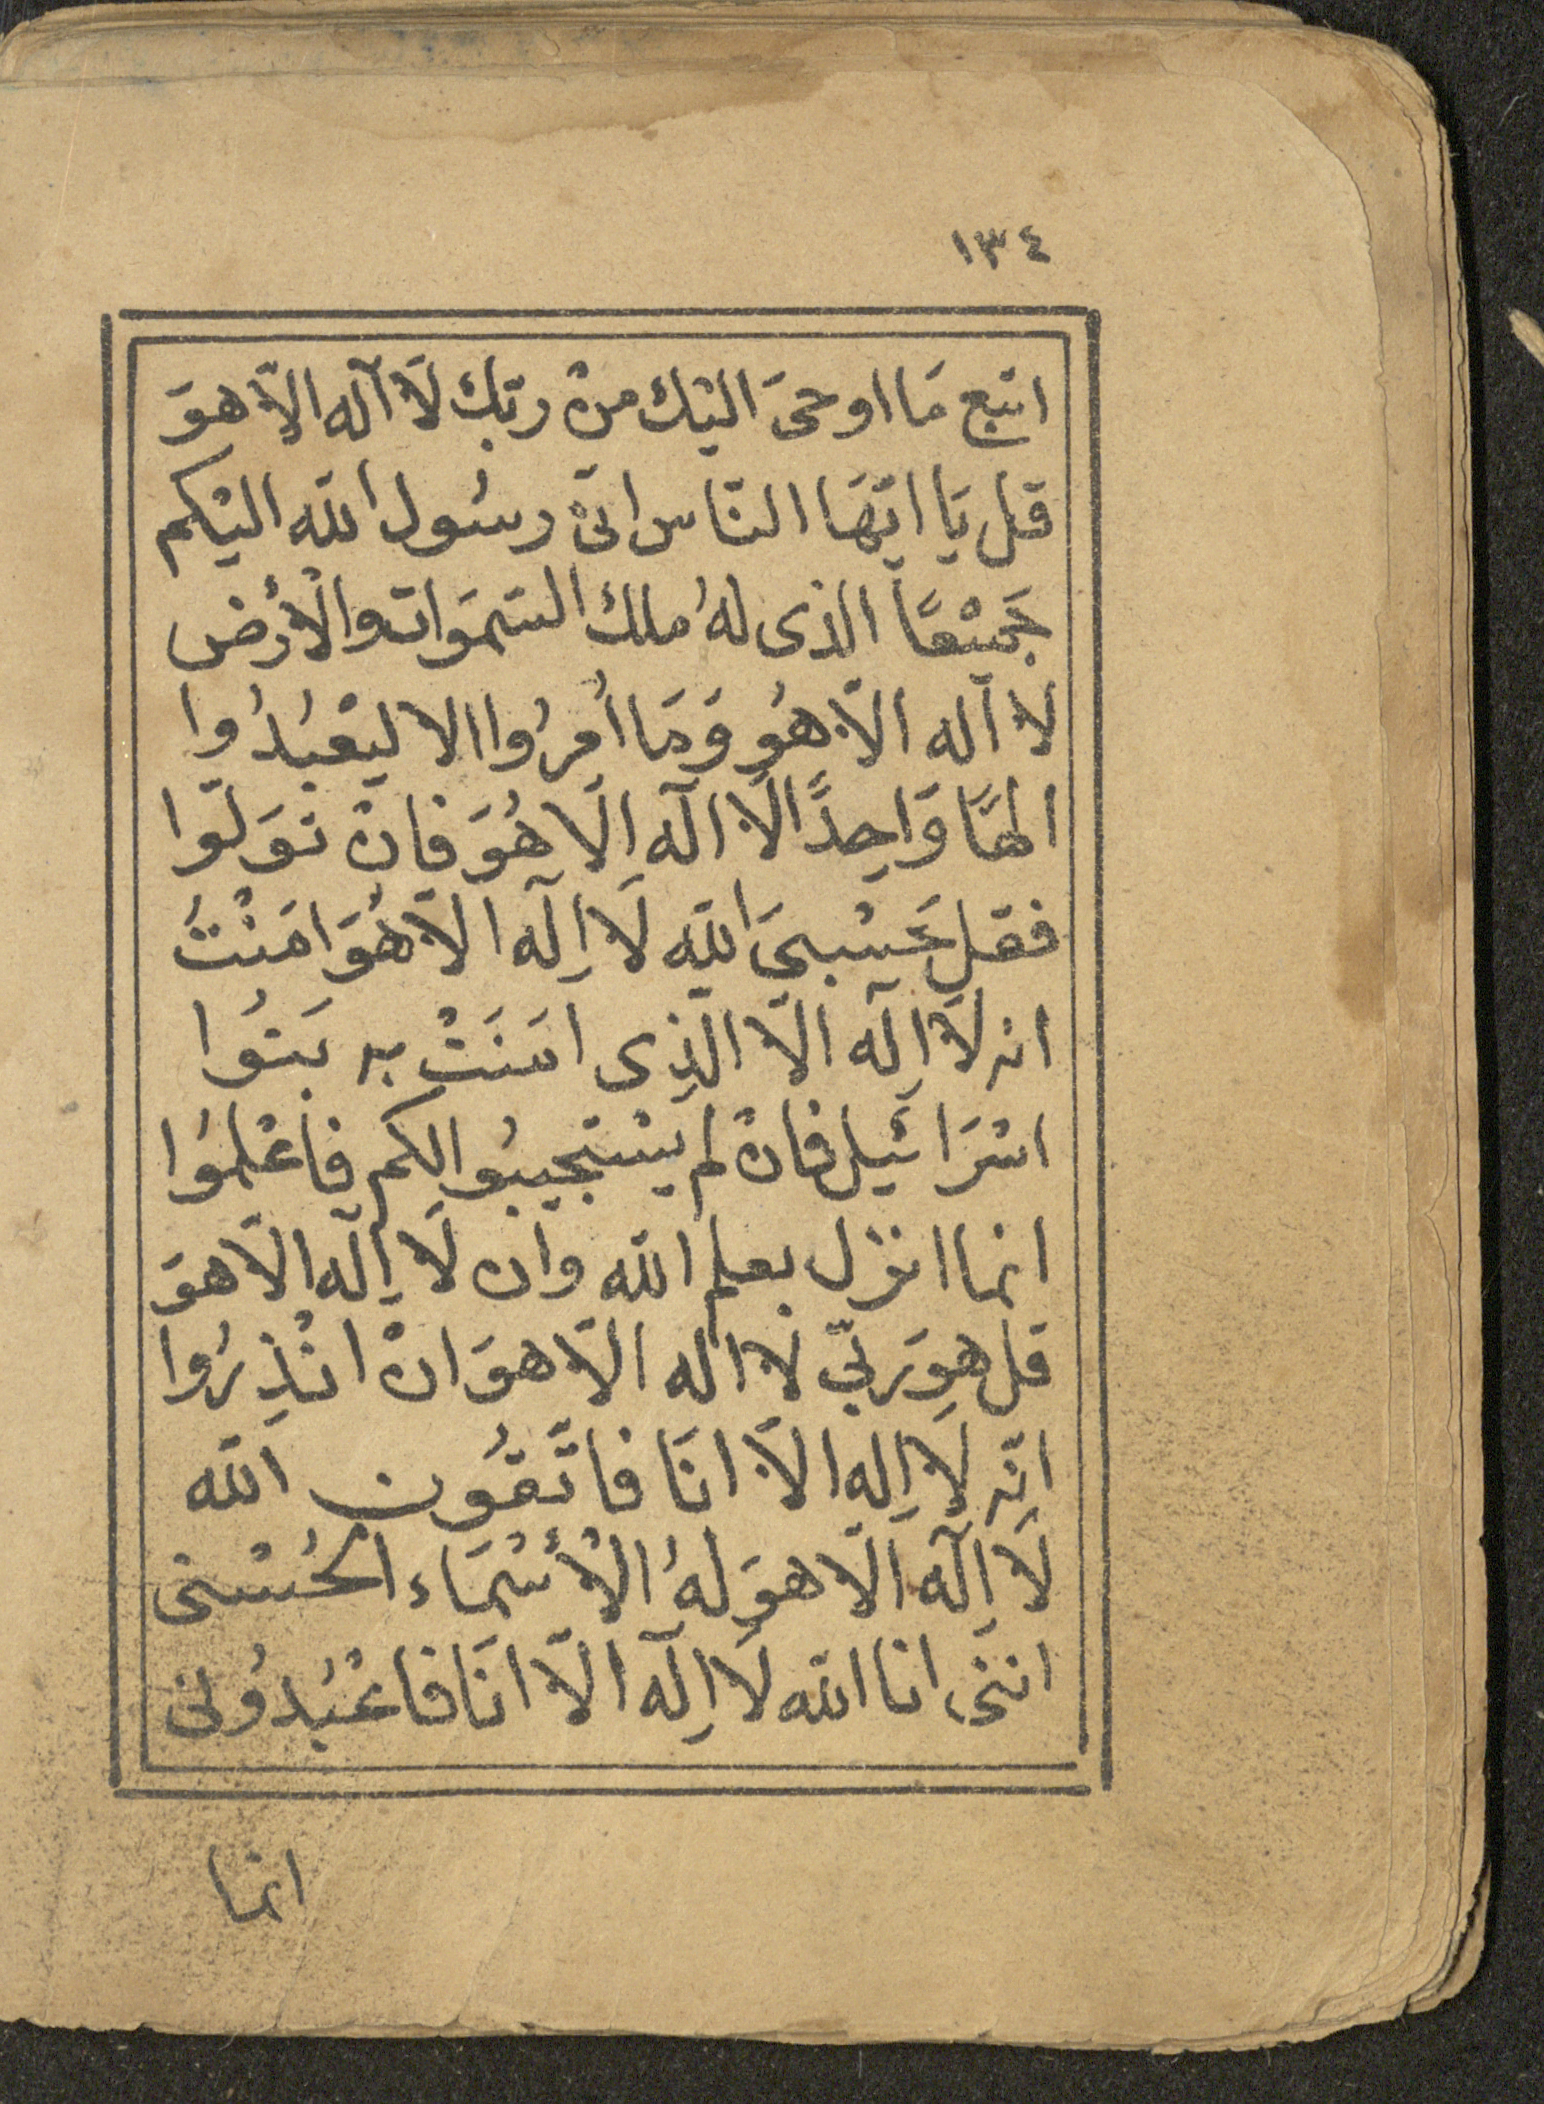 ١٣٤
اتبع مَا اوحىَ اليْك منْ ربّك لَا آله الّا هوَ
قل يَا ايّهَا النّاس انّىْ رسُول اللّه اليْكم
جَميْعًا الذى لهُ ملك السّموَات والْأرْض
لا آله الّا هُو وَمَا أُمرُوا الا ليَعْبُدُوا
الهًا وَاحِدًا لَا اله الّا هُوَ فانْ توَلّوا
فقل حَسْبىَ اللّه لَا اِله الّا هُوَ امَنْتُ
انه لَا اله الّا الّذِى امَنَتْ به بَنوُا
اسْرَائيل فانْ لم يَسْتجيبوُا لكم فاعْلموُا
انما انزل بعلم اللّه وان لَا اِله الّا هوَ
قل هوَ ربّى لا اله الّا هوَ انْ انْذِرُوا
انّه لَا اِله الّا انَا فاتّقُون اللّه
لَا اِله الّا هوَ لهُ الْأسْمَاء الحُسْنى
اننى انا اللّه لَا اِله الّا انَا فاعْبُدُونى
انما